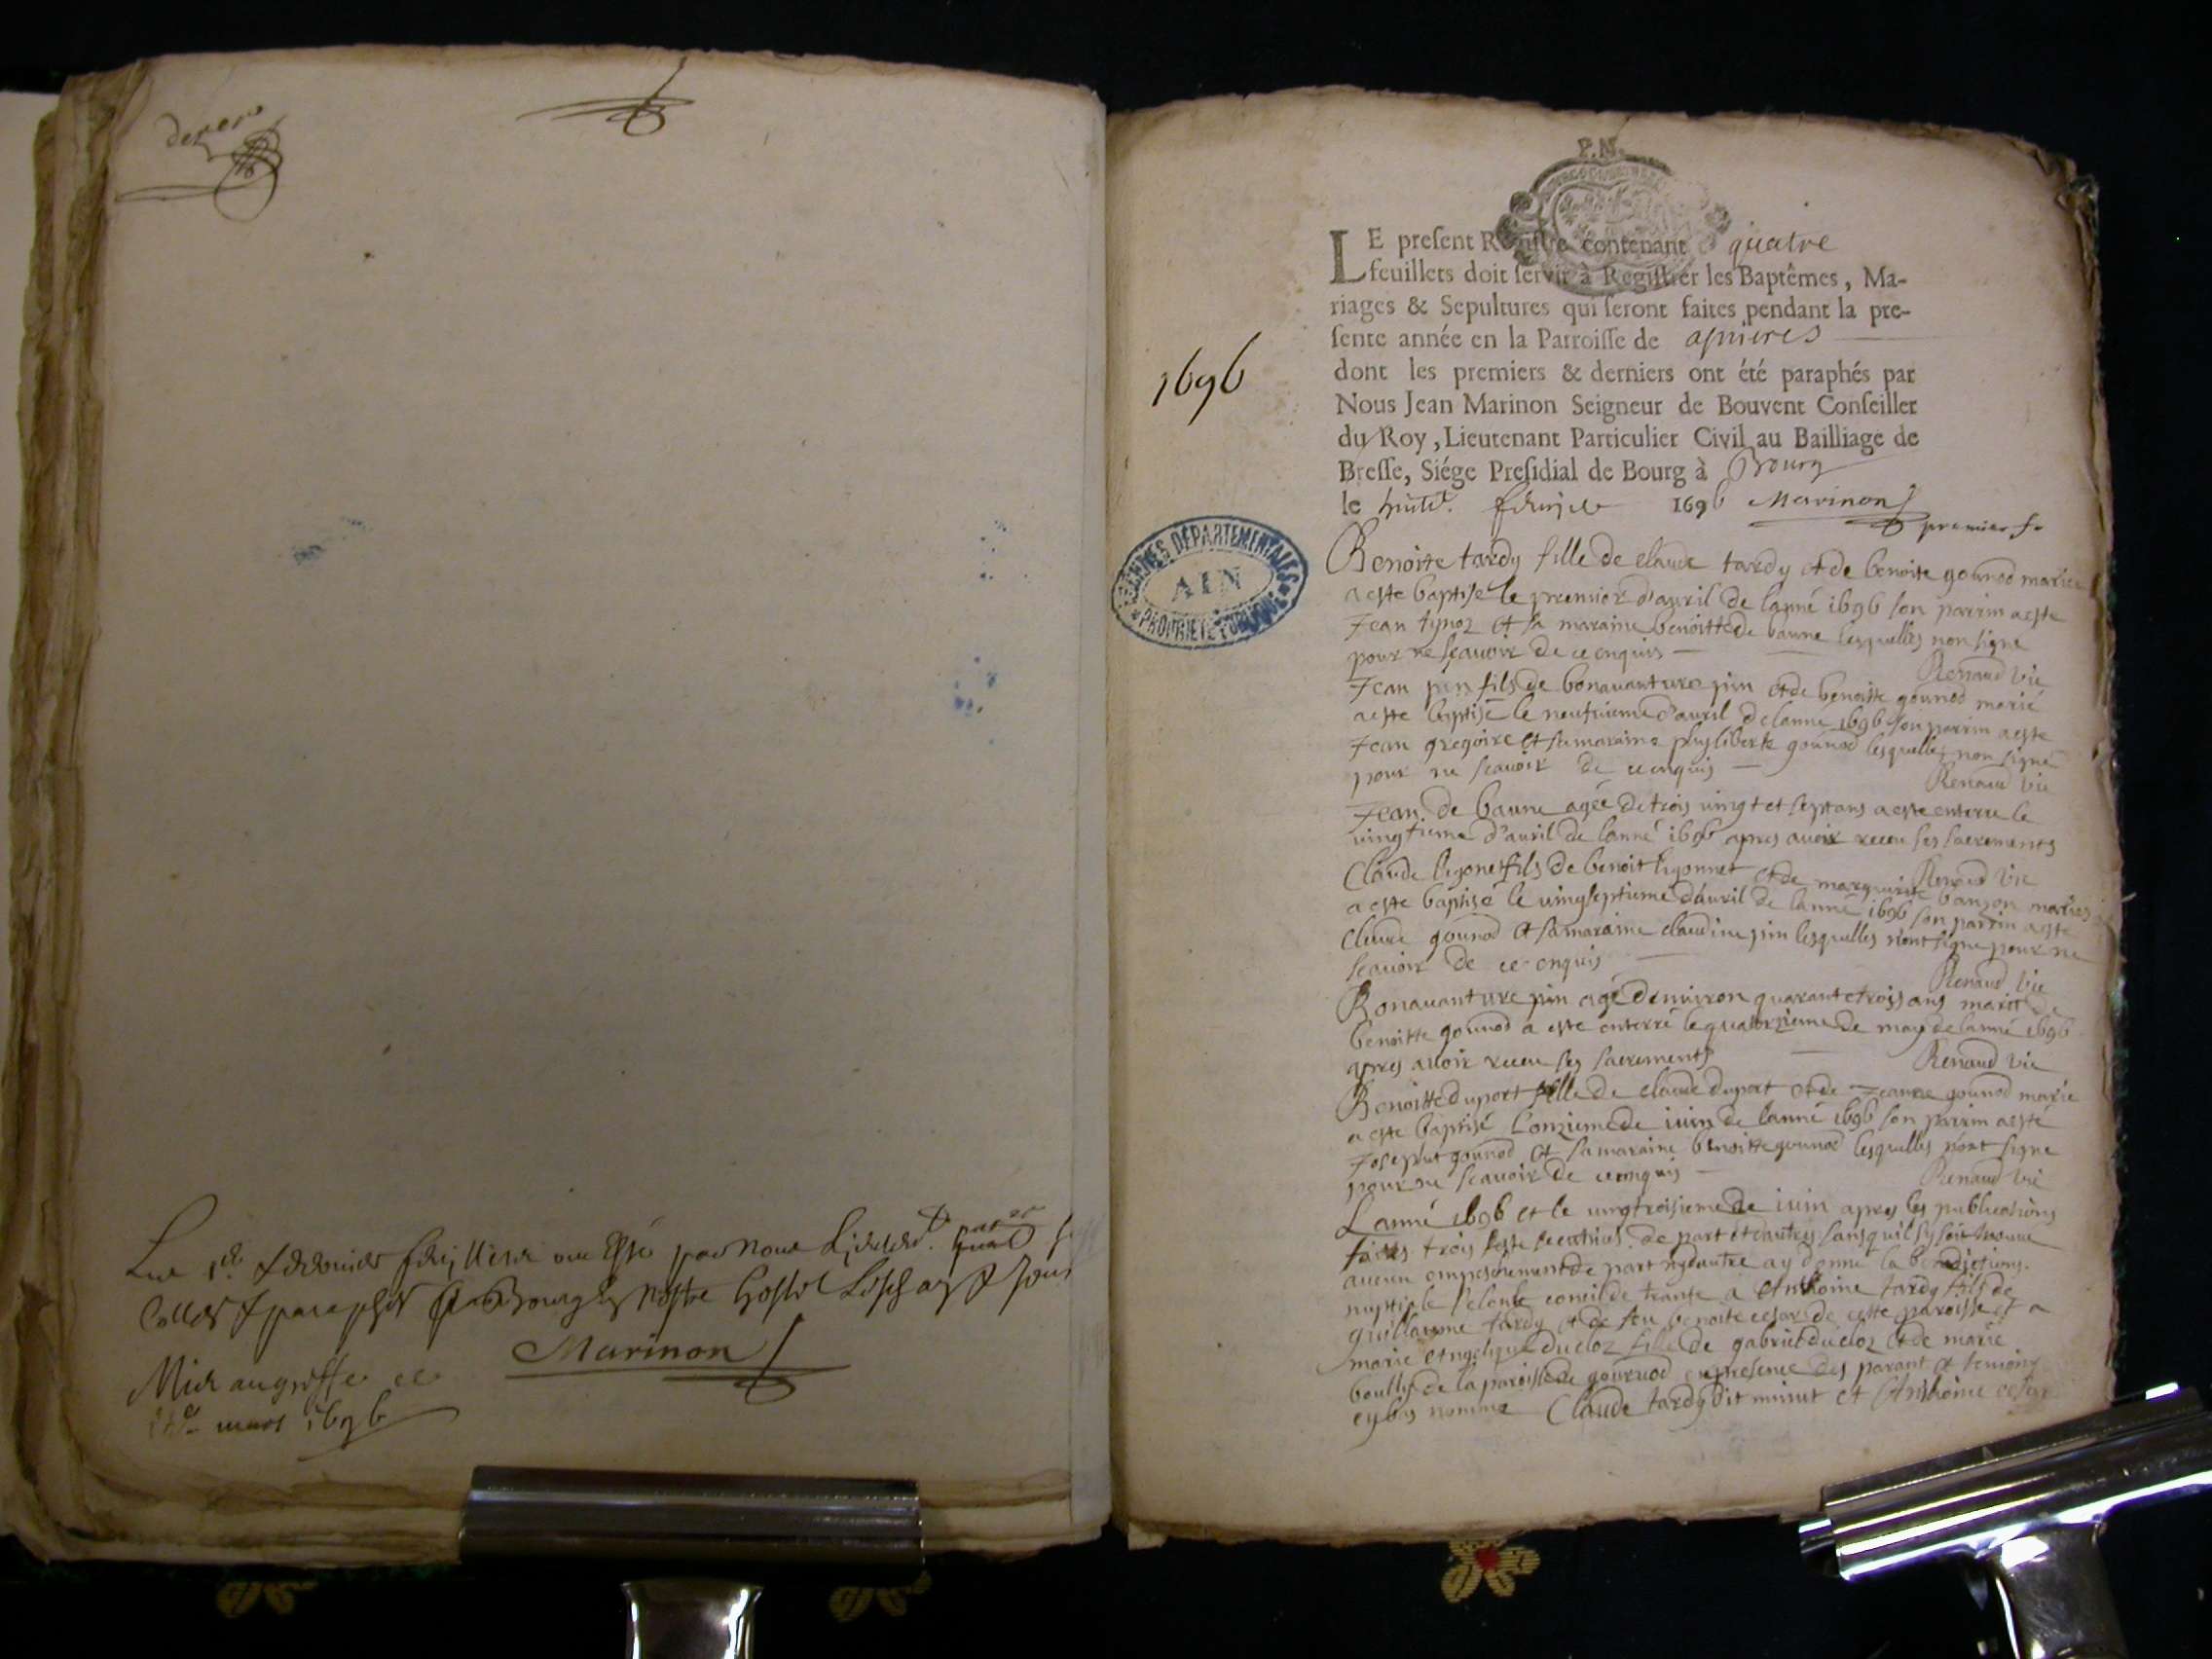 derer
Marinon
mars 1696
1696
P.N.
ARCHIVES DEPARTEMENTALES
AIN
PROPRIETE PUBLIQUE
LE present Registre contenant quatre
feuillets doit servir à Registrer les Baptêmes, Ma-
riages & Sepultures qui seront faites pendant la pre-
sente année en la Parroisse de asnieres
dont les premiers & derniers ont été paraphés par
Nous Jean Marinon Seigneur de Bouvent Conseiller
du Roy, Lieutenant Particulier Civil au Bailliage de
Bresse, Siége Presidial de Bourg à Bourg
le 1696 Marinon
premier f.
Benoite tardy fille de claude tardy et de benoite gounod mariés
a este baptisé le premier d'avril de lanné 1696 son parrin a este
Jean et sa maraine benoitte de baune lesquelles non signe
pour ne scavoir de ce enquis
Renaud vic
Jean pin fils de bonavanture pin et de benoitte gounod marié
a este baptisé le neufvieme d'avril de lanne 1696 son parrin a este
Jean gregoire et sa maraine phyliberte gounod lesquelles non signé
pour ne scavoir de ce enquis
Renaud vic
Jean de baune agée de trois vingt et sept ans a este enterre le
vingtieme d'avril de lanné 1696 apres avoir receu ses sacrements
Renaud vic
Claude ligonet fils de benoit ligonnet et de marguerite banson mariés
a este baptisé le vingseptieme d'avril de lanné 1696 son parrin a este
Claude gounod et sa maraine claudine pin lesquelles n'ont signe pour ne
scavoir de ce enquis
Renaud vic
Bonavanture pin agé d'environ quarante trois ans marit de
benoitte gounod a este enterré le quatorzieme de may de lanné 1696
apres avoir receu ses sacrements
Renaud vic
Benoitte duport fille de claude duport et de Jeanne gounod marié
a este baptisé l'onzieme de iuin de lanné 1696 son parrin a esté
Joseph gounod et sa maraine benoitte gounod lesquelles n'ont signe
pour ne scavoir de ce enquis
Renaud vic
Lanné 1696 et le vingtroisieme de iuin apres les publications
faittes trois feste de part et d'autres sans qu'il sy soit trouvé
aucun empeschement de part ny d'autre ay donné la benediction
nuptiale selon le concil de trante a Anthoine tardy fils de
guillaume tardy et de feu benoite cesar de cette paroisse et a
marie Angelique ducloz fille de gabriel ducloz et de marie
de la paroisse de gourvod en presence des parant et temoins
cy bas nommé Claude tardy dit minut et Anthoine cesar